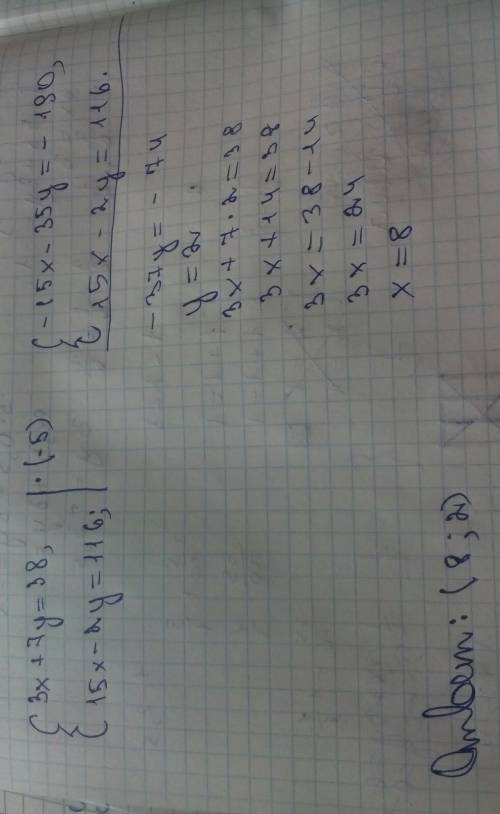 { 3x + 7y = 38, | · (-5)
{ 15x - 2y = 116; |
{ -15x - 35y = -190,
{ 15x - 2y = 116.
-37y = -74
y = 2
3x + 7 · 2 = 38
3x + 14 = 38
3x = 38 - 14
3x = 24
x = 8
Ответ: (8; 2)